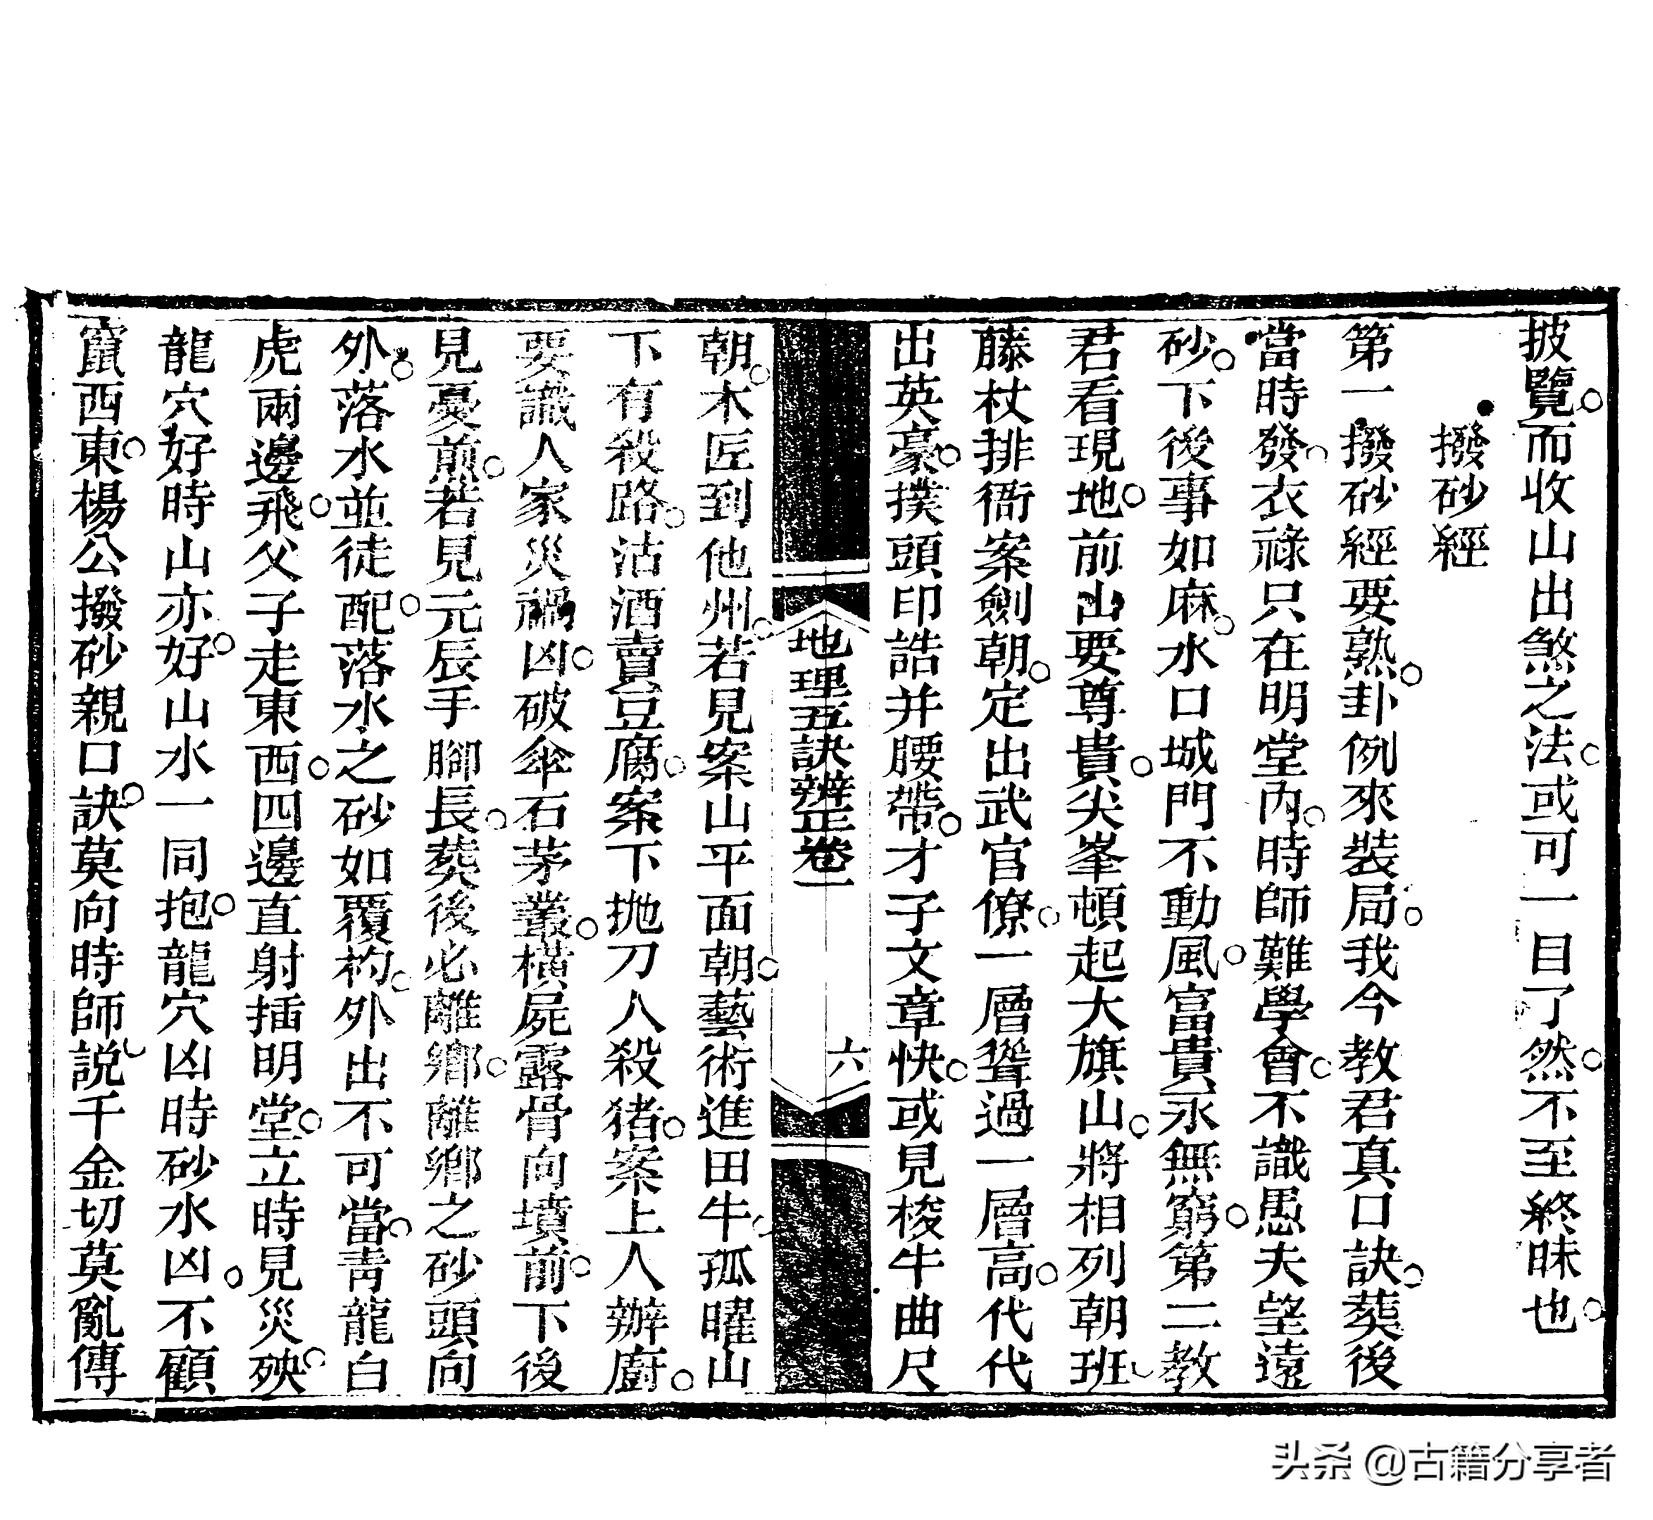 披覽而收山出煞之法或可一目了然不至終昧也
撥砂經
第一撥砂經要熟卦例來裝局我今教君真口訣葬後
當時發衣祿只在明堂內時師難學會不識愚夫望遠
砂下後事如麻水口城門不動風富貴永無窮第二教
君看現地前山要尊貴尖峯頓起大旗山將相列朝班
藤杖排衙案劍朝定出武官僚一層聳過一層高代代
出英豪撲頭印誥并腰帶才子文章快或見梭牛曲尺
地理五訣辨正卷一
六
朝木匠到他州若見案山平面朝藝術進田牛孤曜山
下有殺路沽酒賣豆腐案下拋刀人殺猪案上人辦廚
要識人家災禍凶破傘石茅叢橫屍露骨向墳前下後
見憂煎若見元辰手腳長葬後必離鄉離鄉之砂頭向
外落水並徒配落水之砂如覆杓外出不可當青龍白
虎兩邊飛父子走東西四邊直射插明堂立時見災殃
龍穴好時山亦好山水一同抱龍穴凶時砂水凶不顧
竄西東楊公撥砂親口訣莫向時師説千金切莫亂傳
头条 @古籍分享者